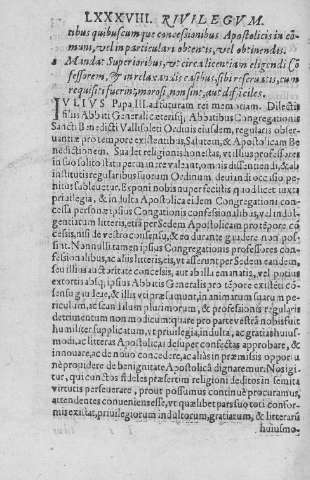 LXXXVIII. RIVILEGVM.
tibus quibuscumque concessionibus Apostolicis in cõ-
muni, vel in particulari obtentis, vel obtinendis.
Mandat Superioribus, vt circa licentiam eligendi Cõ
fessorem, & in relaxandis casibus, sibi reseruatis, cum
requisiti fuerint, morosi, non sint, aut difficiles.
IVLIVS Papa III. ad futuram rei memoriam. Dilecti
filij Abbatis Generalis cæterisq; Abbatibus Congregationis
Sancti Benedicti Vallisoleti Ordinis eiusdem, regularis obser-
uantiæ pro tempore existentibus, Salutem, & Apostolicam Be
nedictionem. Suadet religionis honestas, vt illius professores
in suo solito statu permanere valeant, omnis dissentiendi, & ab
institutis regularibus suorum Ordinum deuiandi occasio pe-
nitus subleuetur. Exponi nobis nuper fecistis quod licet iuxta
priuilegia, & indulta Apostolica eidem Congregationi con-
cessa personæ ipsius Congationis confessionalibus, vel indul-
gentiarum litteris, etiã per Sedem Apostolicam protẽpore cõ
cessis, nisi de vestro consensu, & eo durante gaudere non pos-
sint. Nonnulli tamen ipsius Congregationis professores con-
fessionalibus, ac aliis litteris, etiã, vt asserunt per Sedem eandem,
seu illius auctoritate concessis, aut ab illa emanatis, vel potius
extortis absq; ipsius Abbatis Generalis, pro tẽpore existẽti cõ
sensu gaudere, & illis vti præsumunt, in animarum suarum pe-
riculum, ac scandalum plurimorum, & professionis regularis
detrimentum non modicum: quare pro parte vestra nobis fuit
humiliter supplicatum, vt priuilegia, indulta, ac gratias huius-
modi, ac litteras Apostolicas desuper confectas approbare, &
innouare, ac de nouo concedere, ac aliàs in præmissis opportu
nè prouidere de benignitate Apostolica dignaremur. Nos igi-
tur, qui cunctos fideles præsertim religioni deditos in semita
virtutis perseuerare, prout possumus continuè procuramus,
attendentes conueniens esse, vt quælibet pars suo toti confor-
mis existat, priuilegiorum indultorum, gratiarum, & litterarũ
huiusmo-